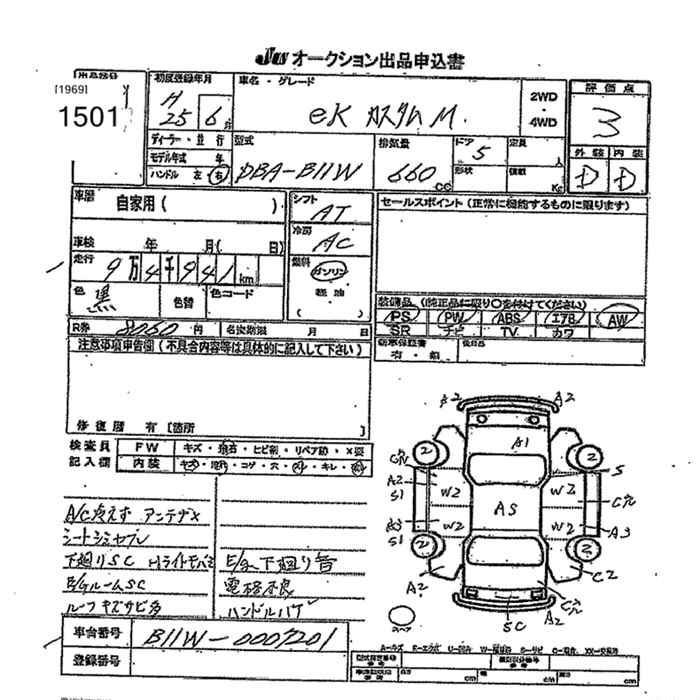 JU オークション出品申込書
[1969]
1501
初度登録年月
H 25 6 月
車名・グレード
eK カスタム M.
2WD
・
4WD
評価点
3
ディーラー・並行
モデル年式 年
ハンドル 左 右
型式
DBA-B11W
排気量
660 cc
ドア
5
形状
定員
人
積載
Kg
外装 内装
D D
車歴
自家用 ( )
シフト
AT
セールスポイント (正常に機能するものに限ります)
車検 年 月( 日)
冷房
AC
走行
9万4千941 km
燃料
ガソリン
軽油
( )
色 黒
色替
色コード
装備品 (純正品に限り○を付けてください)
PS PW ABS エアB AW
SR ナビ TV カワ
R券 8060 円
名変期限 月 日
新車保証書
有・無
後日品
注意事項申告欄 (不具合内容等は具体的に記入して下さい)
修復歴 有 [箇所
検査員
記入欄
FW
キズ・飛石・ヒビ割・リペア跡・×要
内装
A/C冷えず アンテナX
シートシミヤブレ
下廻りSC
E/g下廻り音
E/gルームSC
電格不良
ルーフキズサビ多
ハンドルハゲ
車台番号
B11W-0007201
登録番号
A2 A2
A1
2 2
A2
S1
S
W2 W2
AS
A3
S1
W2 W2
A3
2 2
A2
C2
SC
A2
スペア
cm cm cm